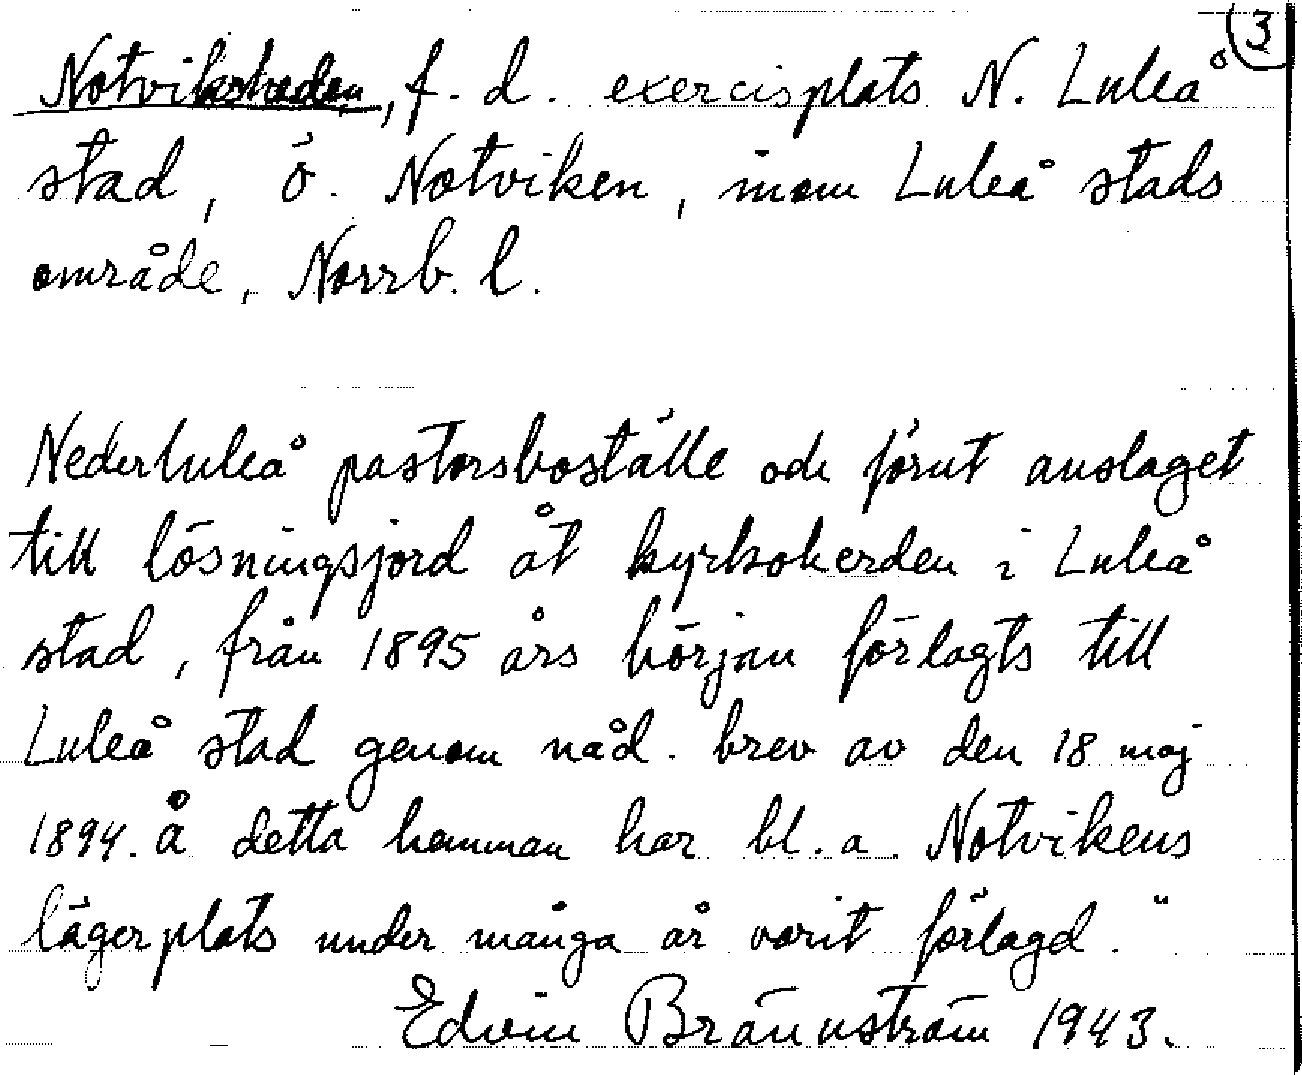 3
Notviksheden, f. d. exercisplats N. Luleå
stad, ö. Notviken, inom Luleå stads
område, Norrb. l.
Nederluleå pastorsboställe och förut anslaget
till lösningsjord åt kyrkoherden i Luleå
stad, från 1895 års början förlagts till
Luleå stad genom nåd. brev av den 18 maj
1894. Å detta hemman har bl. a. Notvikens
lägerplats under många år varit förlagd."
Edvin Brännström 1943.